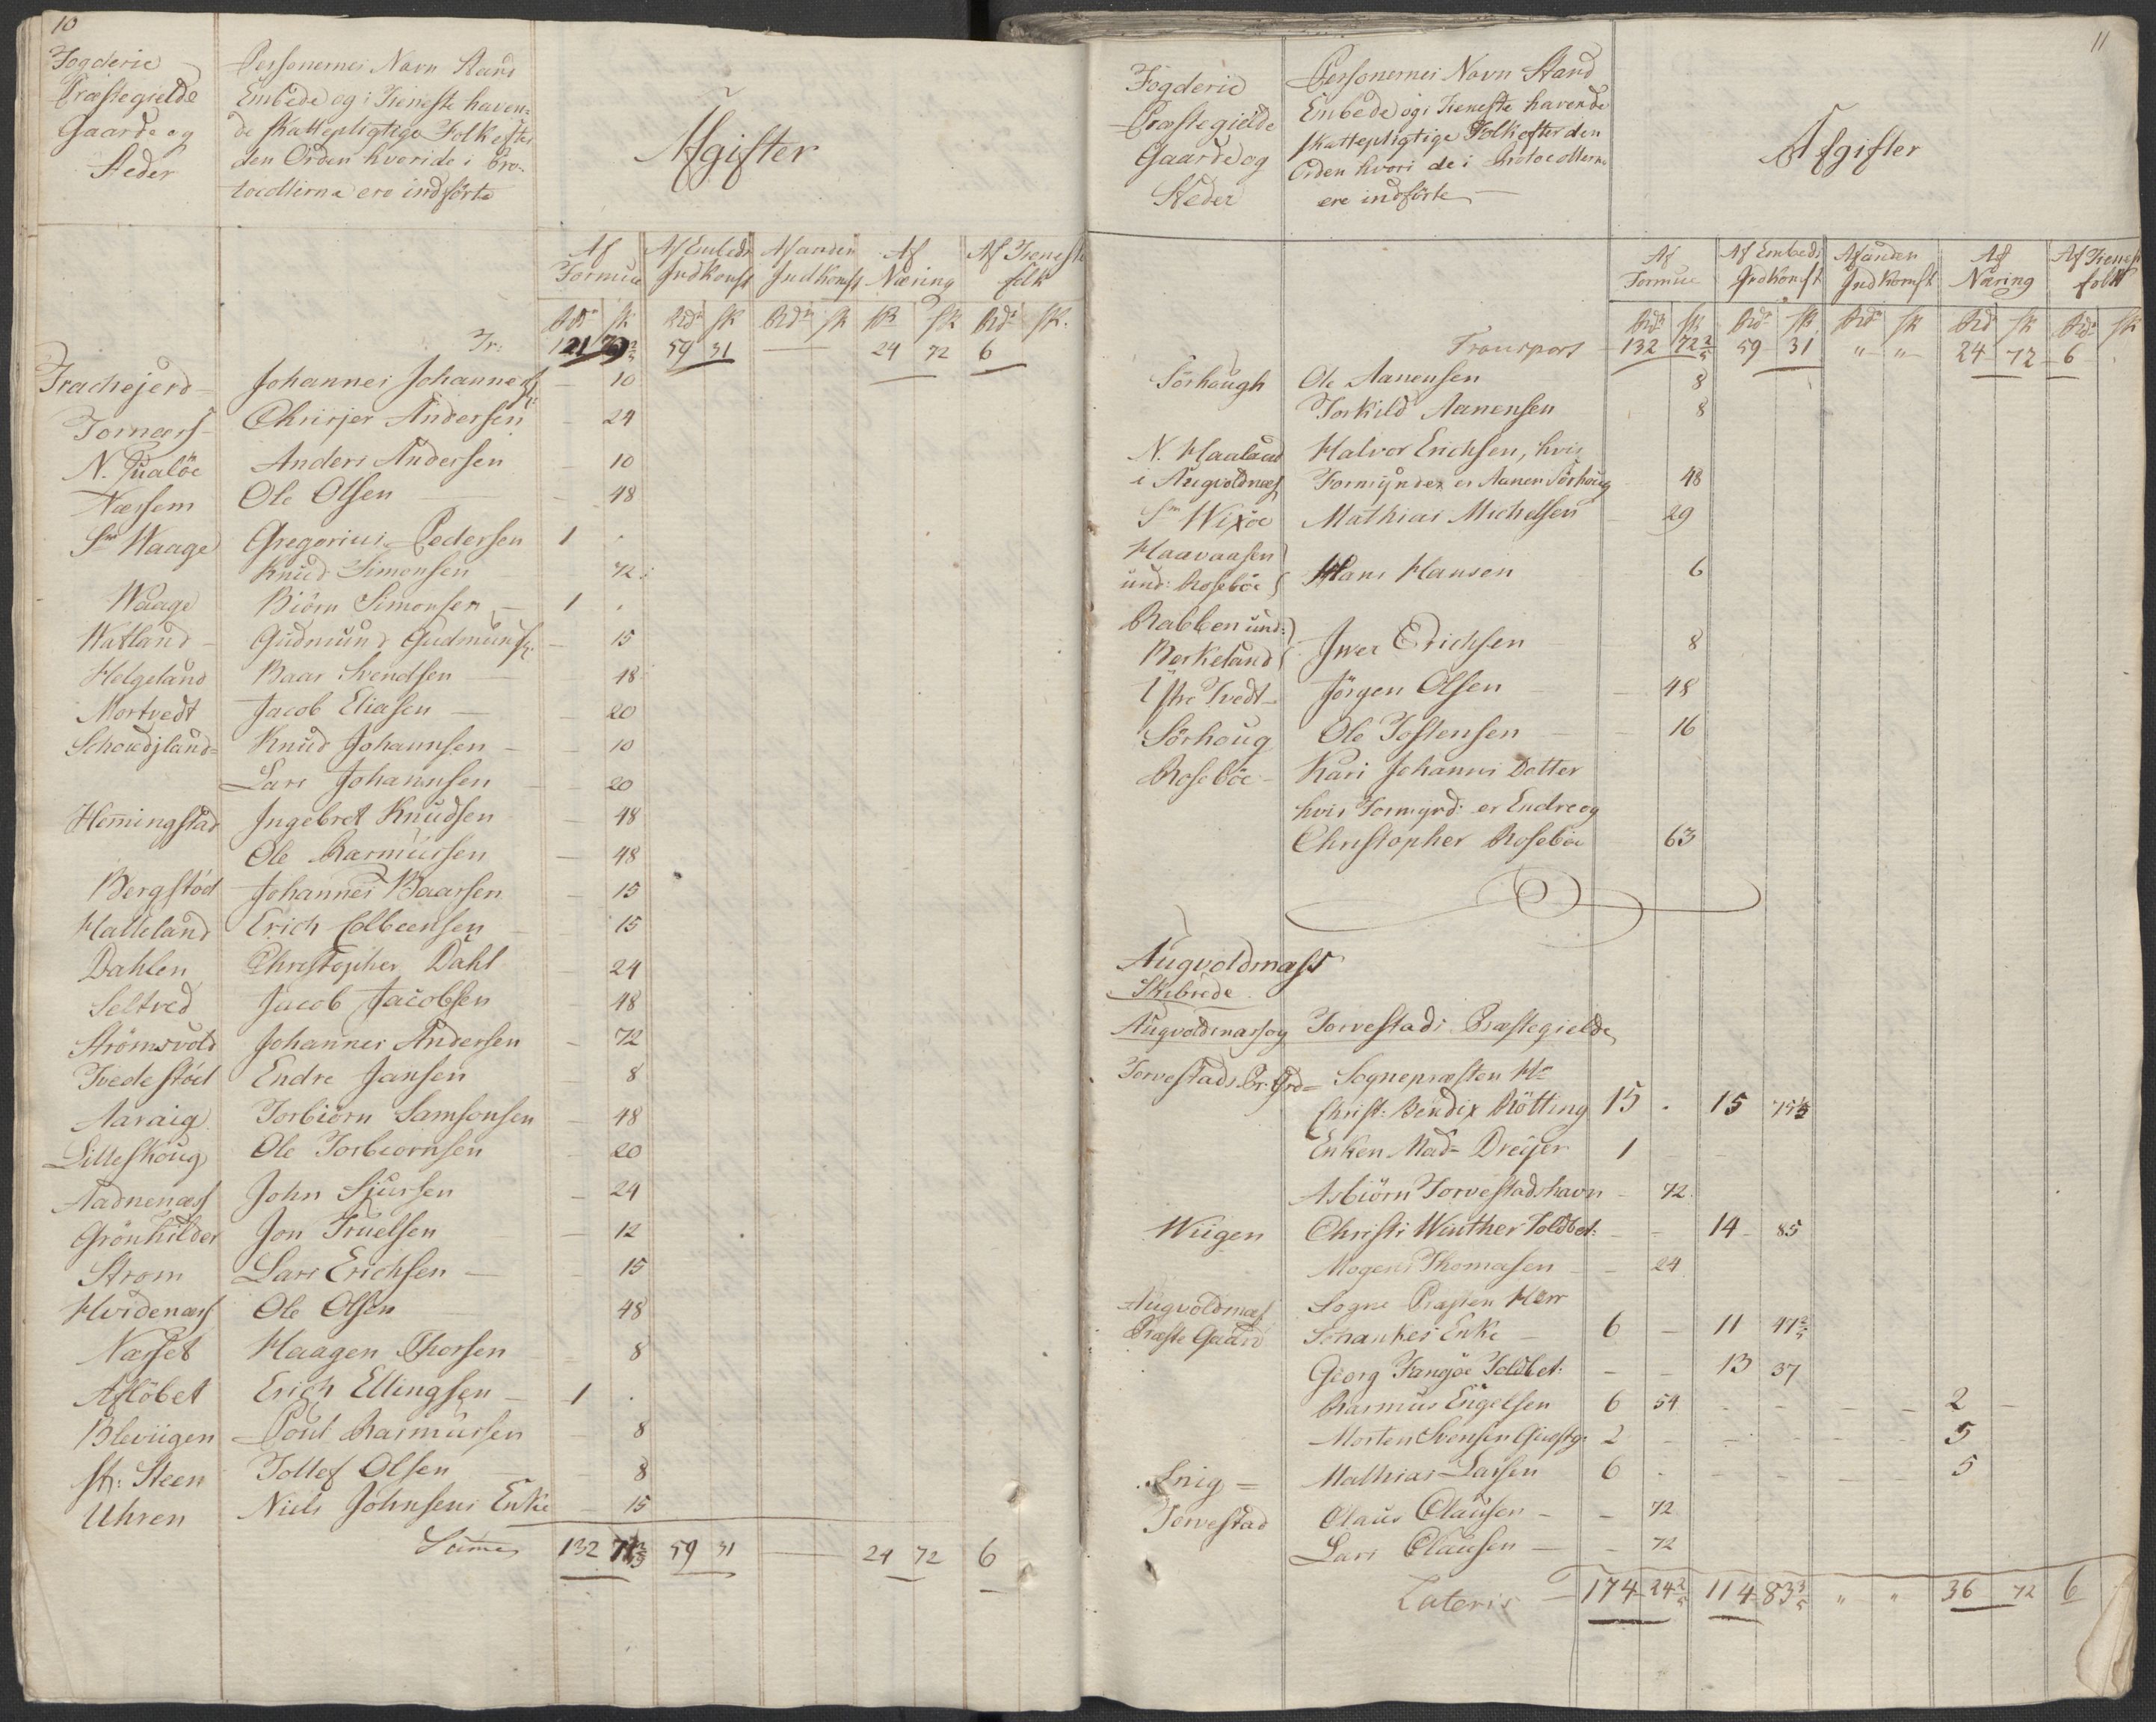 10
Fogderie
Præstegielde
Gaarde og
Steder
Personernes Navn Stand
Embede og i Tieneste haven-
de skattepligtige Folk efter
den Orden hvori de i Pro-
tocollerne ere indførte
Afgifter
Af Formue Af Embeds Indkomst Af anden Indkomst Af Næring Af Tieneste folk
Rdr sk Rdr sk Rdr sk Rd sk Rdr sk.
Tr: 121 59 31 — 24 72 6
Johannes — 10
Andersen — 24
Anders Andersen — 10
Ole Olsen — 48
Sr Waage Gregorius Pedersen 1 .
Knud Simonsen 72
Waage Biörn Simonsen — 1 .
Watland — Gudmund Gudmunds: — 15
Helgeland Baar Svendsen — 48
Mortvedt Jacob Eliasen — 20
Knud Johannsen — 10
Lars Johannsen — 20
Hemingstad Ingebret Knudsen — 48
Ole Rasmussen — 48
Bergstöd Johannes Baarsen — 15
Halleland Erich Colbeensen — 15
Dahlen Christopher Dahl 24
Seltved Jacob Jacobsen 48
Strömsvold Johannes Andersen — 72
Tvedestöd Endre Jansen 8
Aaraig Torbiörn Samsonsen — 48
Lilleskoug Ole Torbiörnsen 20
Aadnenæss John Sjursen — 24
Grönhilder Jon Truelsen — 12
Strom Lars Erichsen — 15
Hvidenæss Ole Olsen 48
Næsset Haagen Thorsen 8
Aflöbet Erich Ellingsen — 1 .
Bleviigen Poul Rasmussen 8
St: Steen Tollef Olsen — 8
Uhren Niels Johnsens Enke — 15
Suma 132 59 31 — 24 72 6
11
Fogderie
Præstegielde
Gaarde og
Steder
Personernes Navn Stand
Embede og i Tieneste havende
skattepligtige Folk efter den
Orden hvori de i Protocollerne
ere indførte
Afgifter
Af Formue Af Embeds Indkomst Af anden Indkomst Af Næring Af Tieneste folk
Rdr sk Rdr sk Rdr sk Rd sk Rdr sk
Transport 132 72 2/5 59 31 " " 24 72 6
Sörhaugh Ole Aanensen 8
Torkild Aanensen 8
N. Haaland Halvor Erichsen, hvis
i Augvoldnæs Formynder er Aanen Sörhoug 48
Sr Wixöe Mathias Michelsen 29
Haavaasen
und: Rosseböe Hans Hansen 6
Rabben und:
Berkeland Iver Erichsen 8
Tvedt — Jörgen Olsen — 48
Sörhoug Ole Tostensen — 16
Rosseböe — Kari Johannis Datter
hvis Formynd: er Endre og
Christopher Rosseböe 63
Augvoldnæss
Skibrede
Augvoldnæss og Torvestads Præstegielde
Torvestads Pr: Grd = Sognepræsten Hr
Christ: Bendix Rötting 15 . 15
Enken Mad= Dreyer 1
Asbiörn Torvestadshavn — 72
Wiigen Christi Winther Toldbet: — — 14 85
Mogens Thomasen — 24
Augvoldnæs Sogne Præsten Herr
Præste Gaard Schankes Enke — 6 — 11 47 2/5
Georg Toldbet: — — 13 37
Rasmus Engelsen 6 54 — — — — 2 —
Morten Svensen 2 — — — — — 5
Mathias Larsen 6 . — — — 5
Torvestad Claus Clausen — — 72
Lars Clausen — — 72
Lateris — 174 24 2/5 114 83 3/5 " " 36 72 6